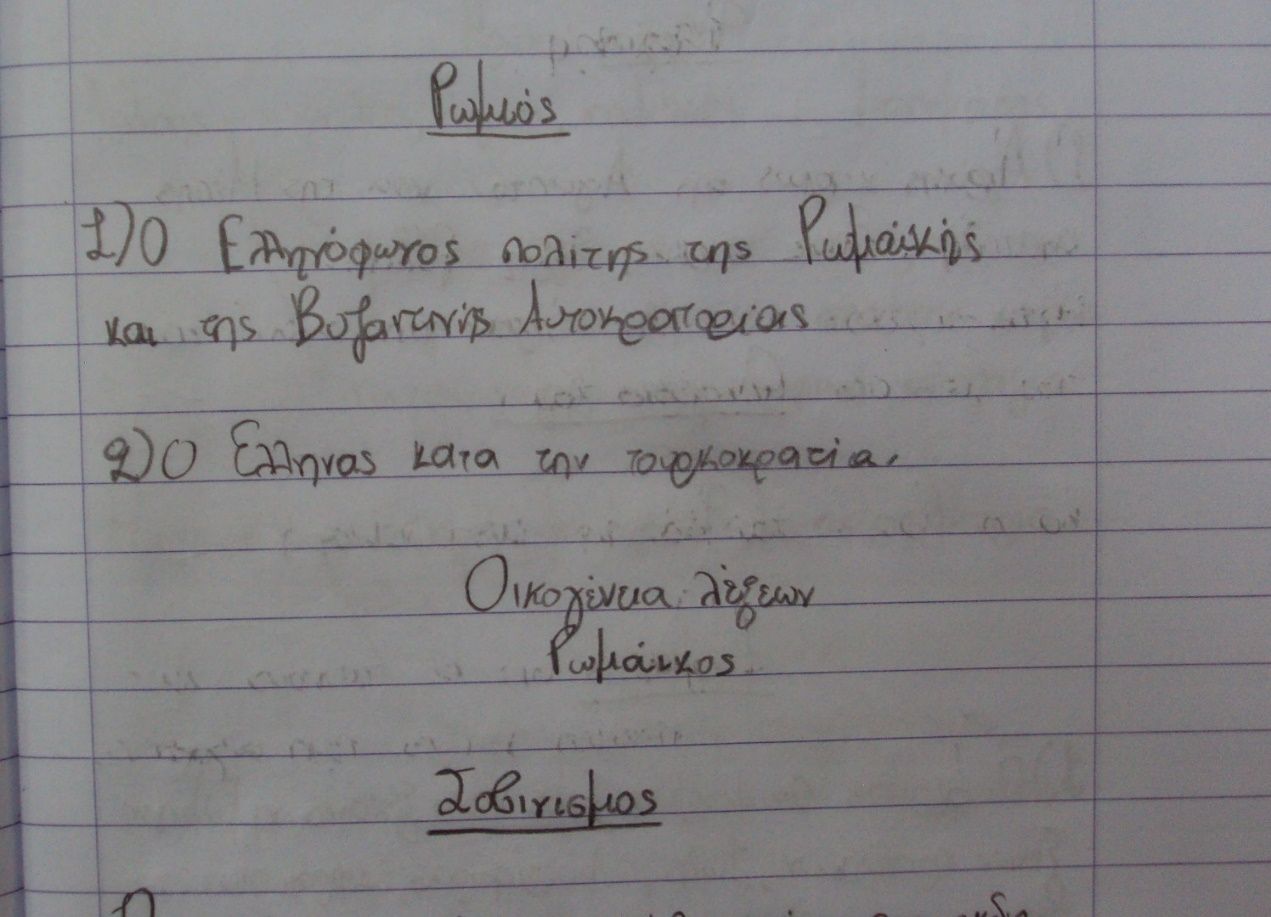 Ρωμιός
1) Ο Ελληνόφωνος πολίτης της Ρωμαϊκής
και της Βυζαντινής Αυτοκρατορείας
2) Ο Έλληνας κατα την τουρκοκρατία.
Οικογένεια λέξεων
Ρωμάικος
Σοβινισμος